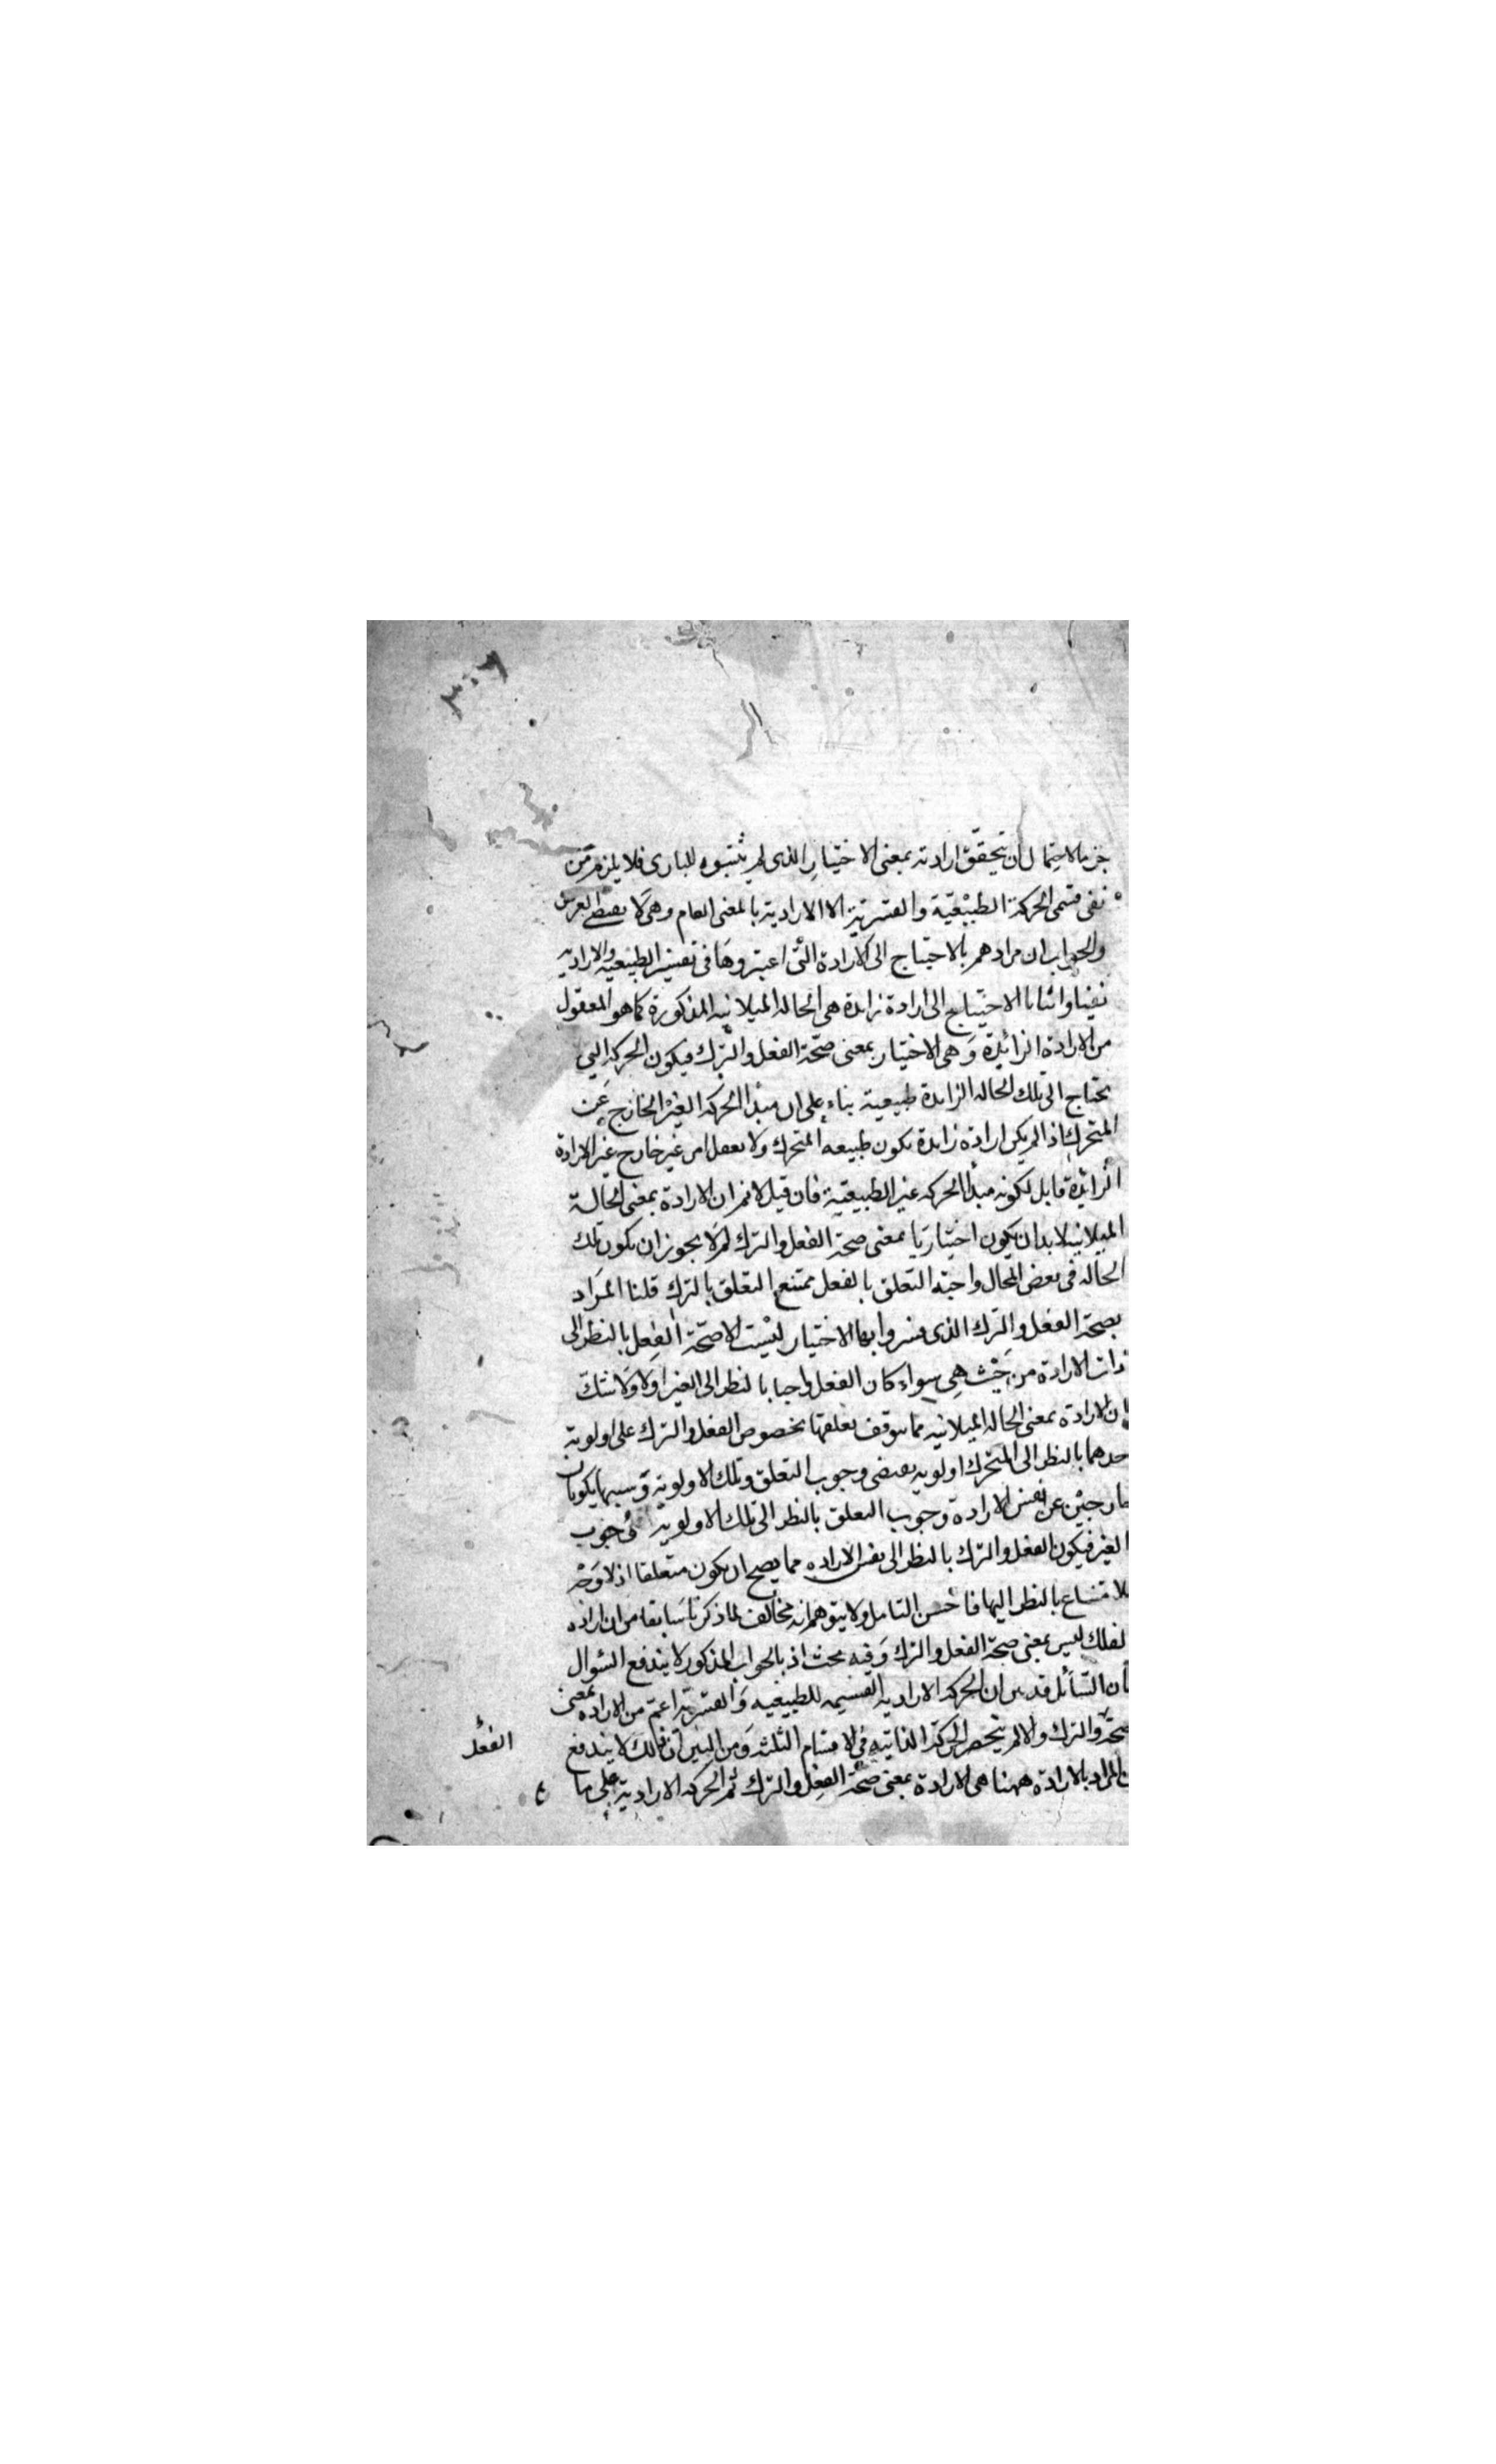 ٣٠٦
لاحتمال ان يتحقق ارادته بمعنى الاختيار الذى لم يثبتوه للبارى فلا يلزم من
نفى قسمى الحركة الطبيعية والقسرية الا الارادية بالمعنى العام وهى لا
والجواب ان مرادهم بالاحتياج الى الارادة التى اعتبروها فى تفسير الطبيعية والارادية
نفيا واثباتا الاحتياج الى ارادة زايدة هى الحاله الميلانيه المذكورة كما هو المعقول
من الارادة الزائدة وهى الاختيار بمعنى صحة الفعل والترك فيكون الحركه التى
تحتاج الى تلك الحاله الزايدة طبيعية بناء على ان مبدا الحركه الغير الخارج عن
المتحرك اذا لم يكن ارادة زايدة يكون طبيعه المتحرك ولا يعقل امر غير خارج غير الارادة
الزايدة قابل لكونه مبدا الحركه غير الطبيعية فان قيل لانم ان الارادة بمعنى الحالة
الميلانيه لابد ان يكون اختياريا بمعنى صحة الفعل والترك لم لا يجوز ان يكون تلك
الحاله فى بعض المحال واجبة التعلق بالفعل ممتنع التعلق بالترك قلنا المراد
بصحة الفعل والترك الذى فسروا بها الاختيار ليست الا صحة الفعل بالنظر الى
ذات الارادة من حيث هى سواء كان الفعل واجبا بالنظر الى الغير اولا ولا شك
ان الارادة بمعنى الحاله الميلانيه مما يتوقف تعلقها بخصوص الفعل والترك على اولوية
احدهما بالنظر الى المتحرك اولويه يقتضى وجوب التعلق وتلك الاولوية وسببها يكونان
خارجين عن نفس الارادة وجوب التعلق بالنظر الى تلك الاولوية وجوب
الغير فيكون الفعل والترك بالنظر الى نفس الاراده مما يصح ان يكون متعلقا اذ لا وجه
للامتناع بالنظر اليها فاحسن التامل ولا يتوهم انه مخالف لما ذكرنا سابقا من ان اراده
الفلك ليس بمعنى صحة الفعل والترك وفيه بحث اذ بالجواب المذكور لا يندفع السؤال
لان السائل قد ان الحركه الارادية القسيمه للطبيعيه والقسرية اعم من الاراده بمعنى
صحة والترك والا لم ينحصر الحركة الذاتيه فى الاقسام الثلثه ومن البين ان ذلك لا يندفع
الفعل
المراد بالارادة ههنا هى الارادة بمعنى صحة الفعل والترك ثم الحركه الارادية على ما